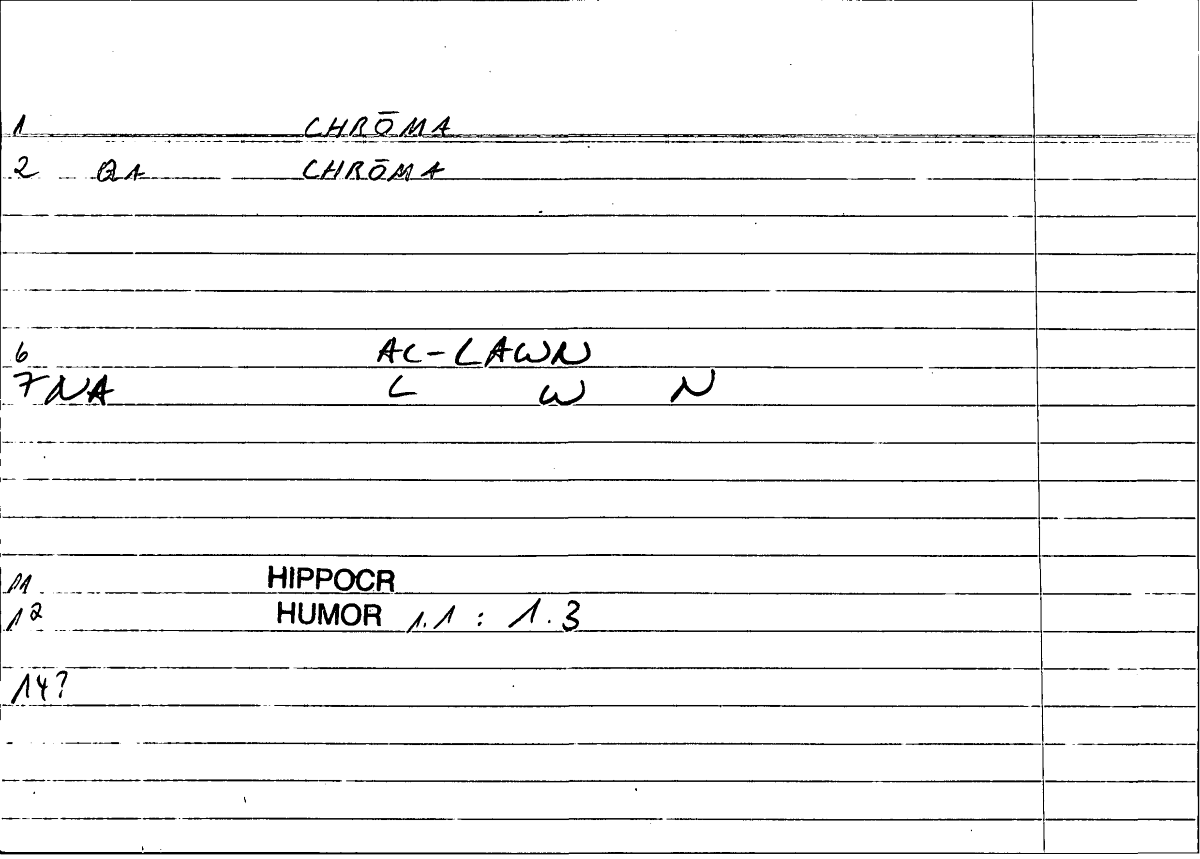 1 CHRŌMA
2 QA CHRŌMA
6 AL-LAWN
7 NA L W N
11 HIPPOCR
12 HUMOR 1.1 : 1.3
14?